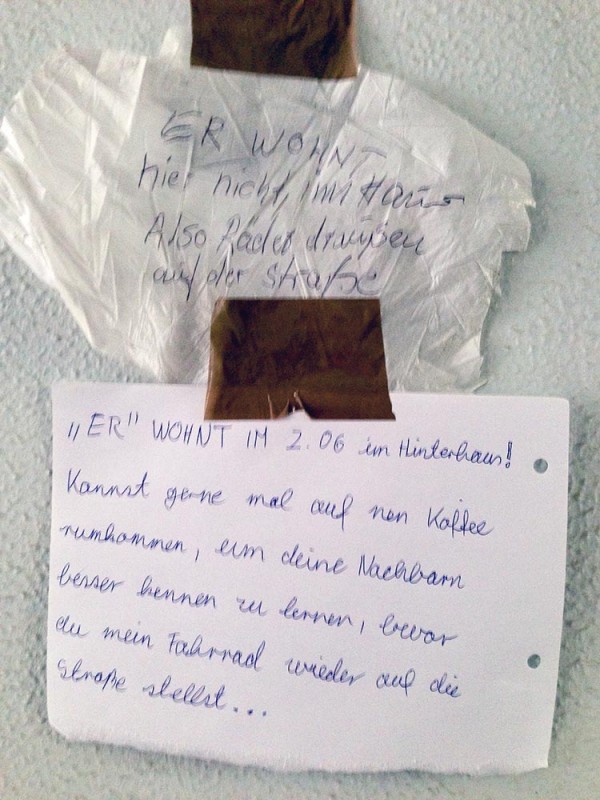 ER WOHNT
hier nicht im Haus
Also Räder draußen
auf der Straße
„ER" WOHNT IM 2.06 im Hinterhaus!
Kannst gerne mal auf nen Kaffee
rumkommen, um deine Nachbarn
besser kennen zu lernen, bevor
du mein Fahrrad wieder auf die
Straße stellst...